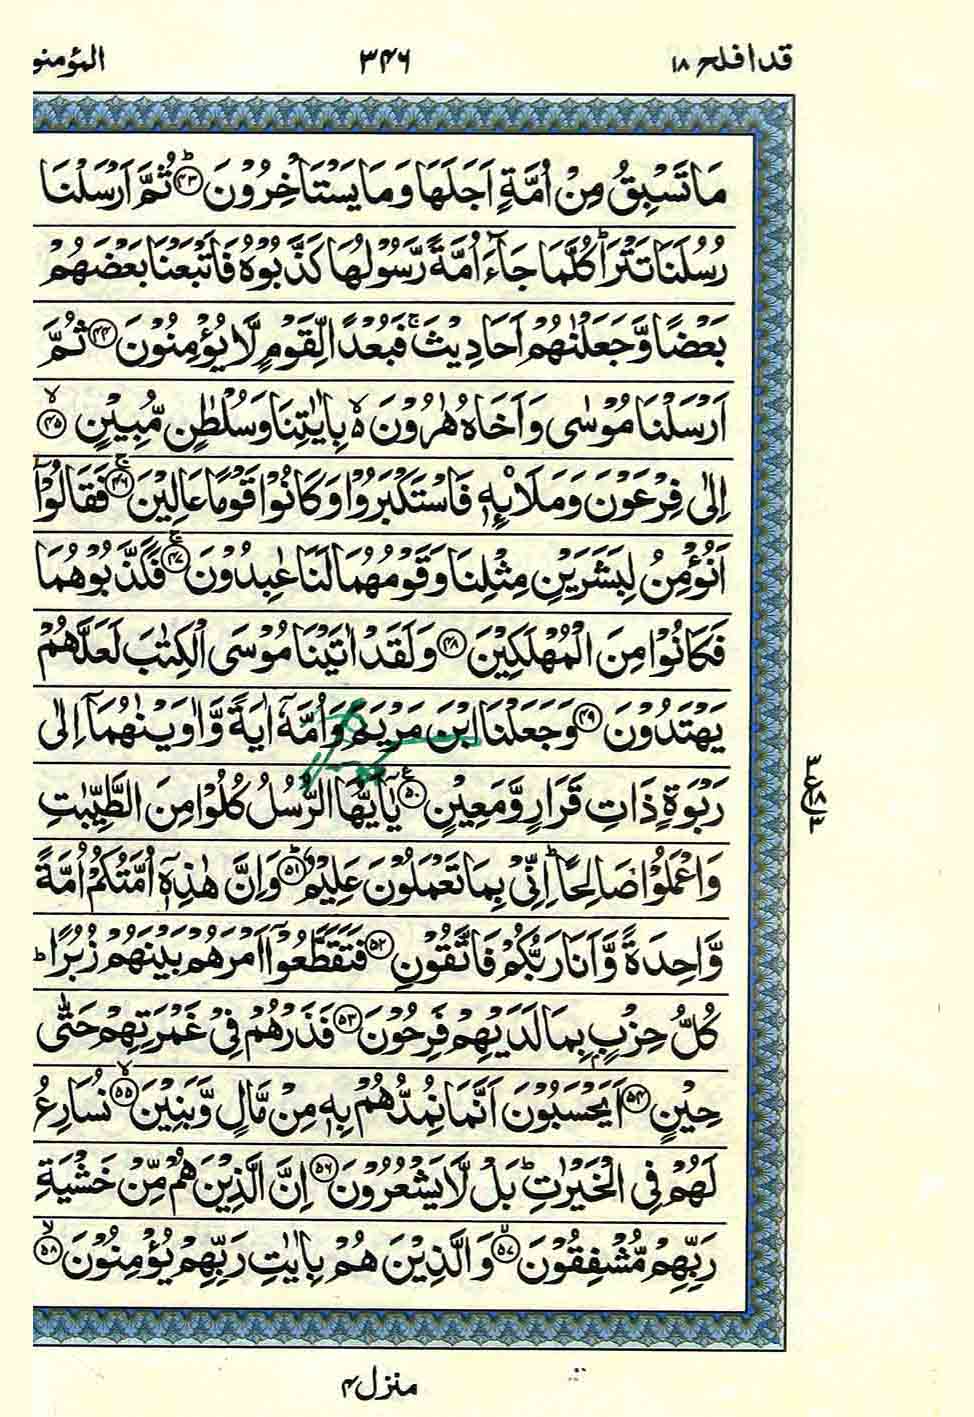 قد افلح ۱۸
۳۴۶
المؤمنو
مَا تَسْبِقُ مِنْ اُمَّةٍ اَجَلَهَا وَمَا يَسْتَاْخِرُوْنَ ؕ﴿۴۳﴾ ثُمَّ اَرْسَلْنَا
رُسُلَنَا تَتْرَا ؕ كُلَّمَا جَآءَ اُمَّةً رَّسُوْلُهَا كَذَّبُوْهُ فَاَتْبَعْنَا بَعْضَهُمْ
بَعْضًا وَّجَعَلْنٰهُمْ اَحَادِيْثَ ۚ فَبُعْدًا لِّقَوْمٍ لَّا يُؤْمِنُوْنَ ﴿۴۴﴾ ثُمَّ
اَرْسَلْنَا مُوْسٰى وَاَخَاهُ هٰرُوْنَ ۙ۬ بِاٰيٰتِنَا وَسُلْطٰنٍ مُّبِيْنٍ ۙ﴿۴۵﴾
اِلٰى فِرْعَوْنَ وَمَلَا۟ئِهٖ فَاسْتَكْبَرُوْا وَكَانُوْا قَوْمًا عَالِيْنَ ۚ﴿۴۶﴾ فَقَالُوْۤا
اَنُؤْمِنُ لِبَشَرَيْنِ مِثْلِنَا وَقَوْمُهُمَا لَنَا عٰبِدُوْنَ ۚ﴿۴۷﴾ فَكَذَّبُوْهُمَا
فَكَانُوْا مِنَ الْمُهْلَكِيْنَ ﴿۴۸﴾ وَلَقَدْ اٰتَيْنَا مُوْسَى الْكِتٰبَ لَعَلَّهُمْ
يَهْتَدُوْنَ ﴿۴۹﴾ وَجَعَلْنَا ابْنَ مَرْيَمَ وَاُمَّهٗۤ اٰيَةً وَّاٰوَيْنٰهُمَاۤ اِلٰى
رَبْوَةٍ ذَاتِ قَرَارٍ وَّمَعِيْنٍ ﴿۵۰﴾ يٰۤاَيُّهَا الرُّسُلُ كُلُوْا مِنَ الطَّيِّبٰتِ
وَاعْمَلُوْا صَالِحًا ؕ اِنِّىْ بِمَا تَعْمَلُوْنَ عَلِيْمٌ ؕ﴿۵۱﴾ وَاِنَّ هٰذِهٖۤ اُمَّتُكُمْ اُمَّةً
وَّاحِدَةً وَّاَنَا رَبُّكُمْ فَاتَّقُوْنِ ﴿۵۲﴾ فَتَقَطَّعُوْۤا اَمْرَهُمْ بَيْنَهُمْ زُبُرًا ؕ
كُلُّ حِزْبٍۭ بِمَا لَدَيْهِمْ فَرِحُوْنَ ﴿۵۳﴾ فَذَرْهُمْ فِىْ غَمْرَتِهِمْ حَتّٰى
حِيْنٍ ﴿۵۴﴾ اَيَحْسَبُوْنَ اَنَّمَا نُمِدُّهُمْ بِهٖ مِنْ مَّالٍ وَّبَنِيْنَ ۙ﴿۵۵﴾ نُسَارِعُ
لَهُمْ فِى الْخَيْرٰتِ ؕ بَلْ لَّا يَشْعُرُوْنَ ﴿۵۶﴾ اِنَّ الَّذِيْنَ هُمْ مِّنْ خَشْيَةِ
رَبِّهِمْ مُّشْفِقُوْنَ ۙ﴿۵۷﴾ وَالَّذِيْنَ هُمْ بِاٰيٰتِ رَبِّهِمْ يُؤْمِنُوْنَ ۙ﴿۵۸﴾
۳
ع
۱۸
۳
منزل ۴